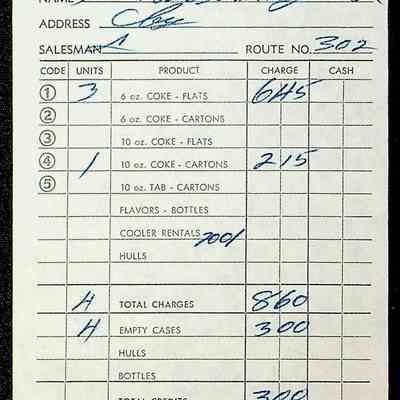 NAME
ADDRESS Clay
SALESMAN ROUTE NO. 302
CODE UNITS PRODUCT CHARGE CASH
1 3 6 oz. COKE - FLATS 645
2 6 oz. COKE - CARTONS
3 10 oz. COKE - FLATS
4 1 10 oz. COKE - CARTONS 215
5 10 oz. TAB - CARTONS
FLAVORS - BOTTLES
COOLER RENTALS
HULLS
4 TOTAL CHARGES 860
4 EMPTY CASES 300
HULLS
BOTTLES
TOTAL CREDITS 300